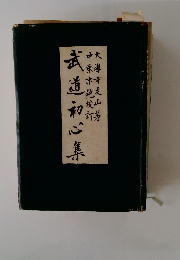 大道寺友山著
古川哲史校訂
武道初心集